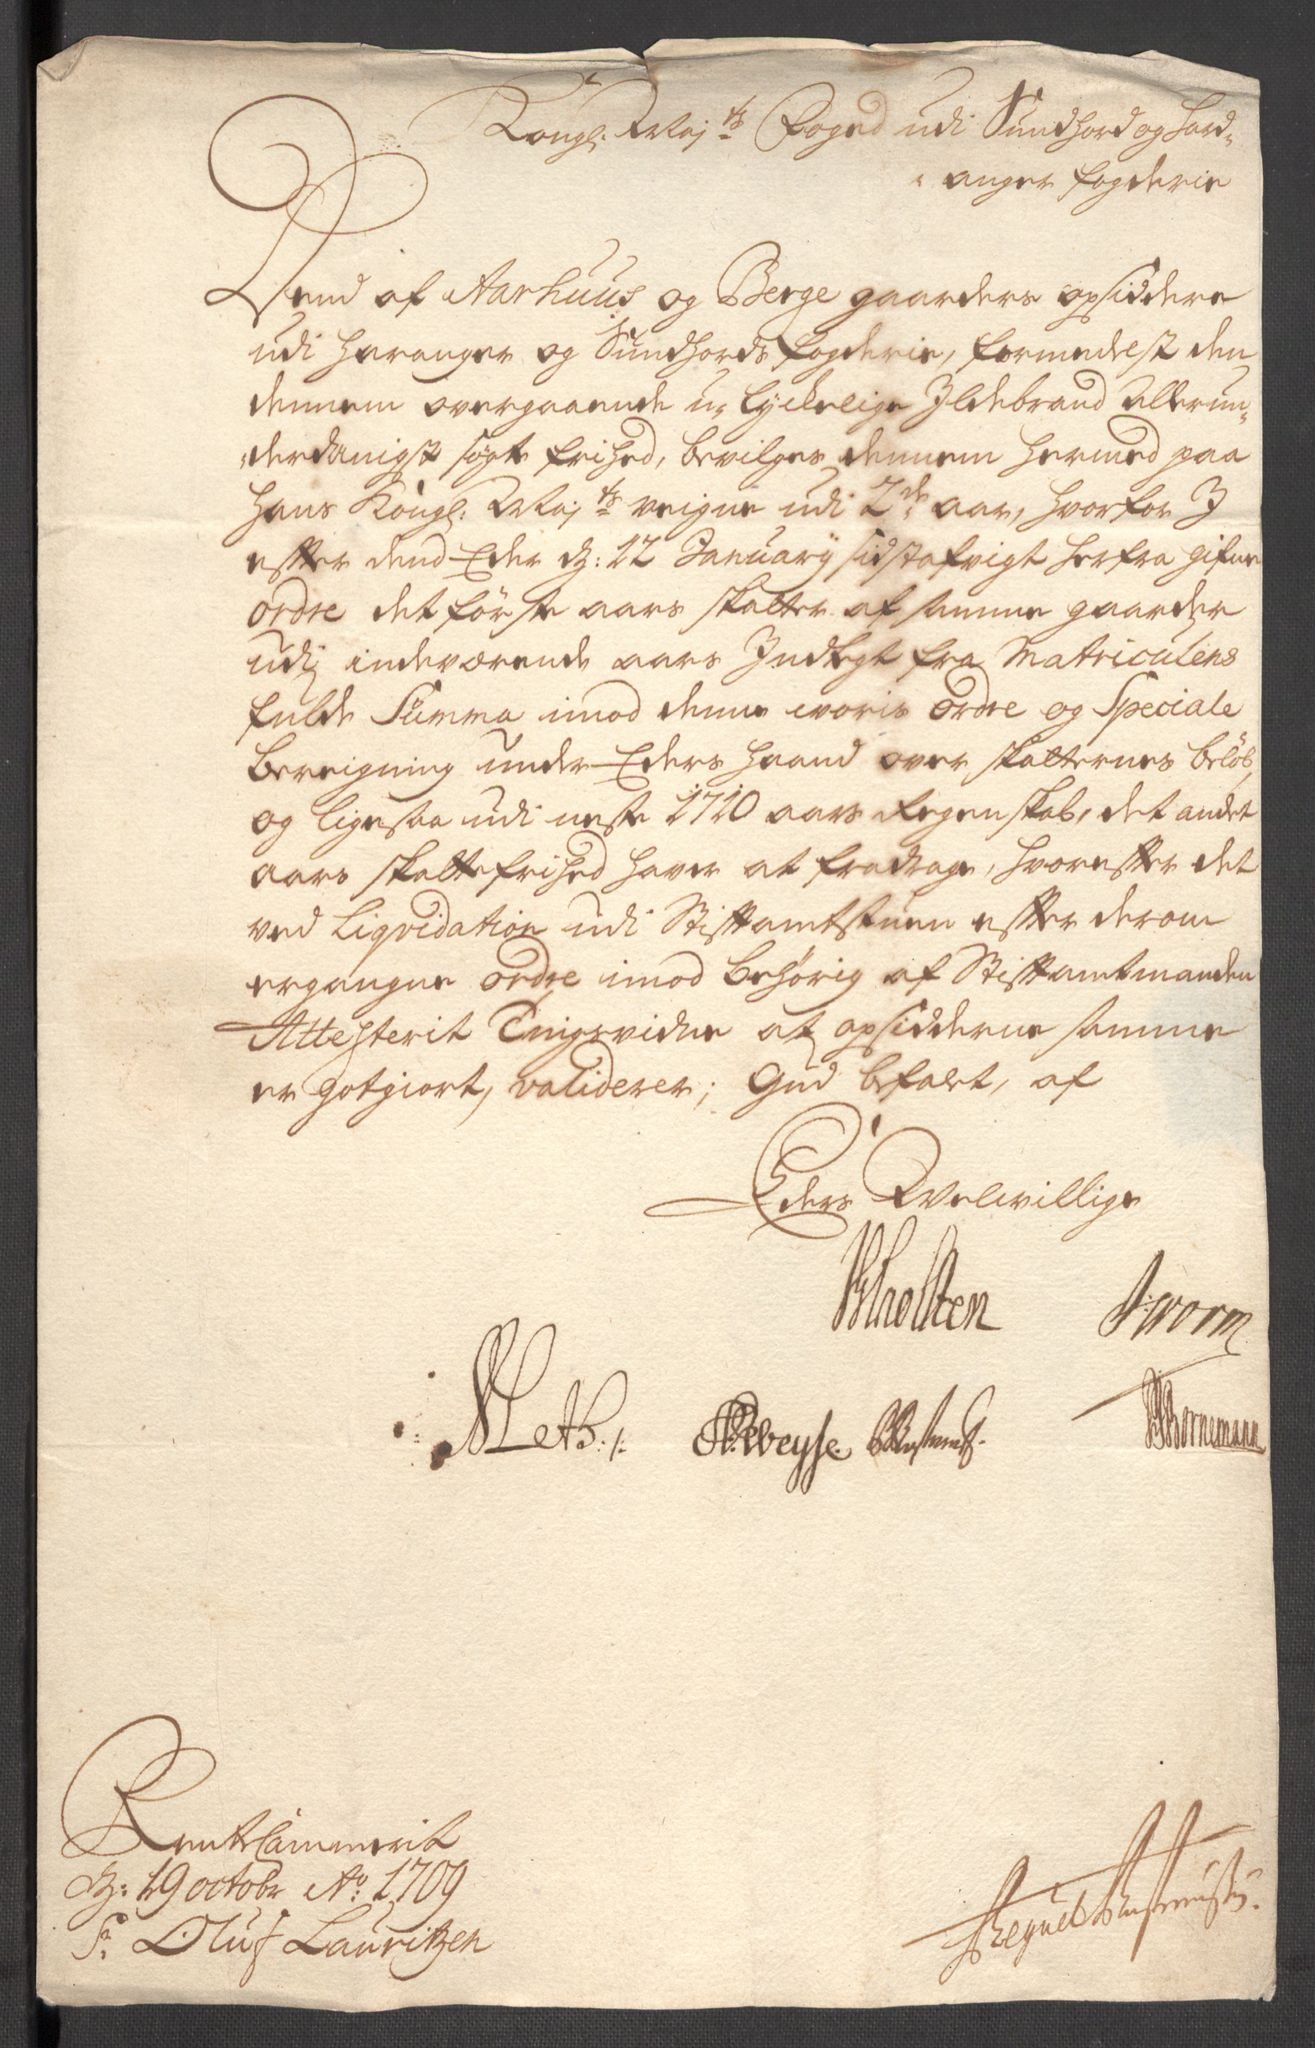 Kongl: Maj:ts Foged udi Sundhord og Hard-
anger fogderie
Dend af Aarhuus og Berge gaarders opsiddere
udi Haranger og Sundhords fogderie, formedelst den
dennem overgaaende u-lyckelige Ildebrand Allerun-
derdanigst søgte frihed, bevilges dennem hermed paa
Hans Kongl: Maj:ts veigne udi 2de aar, hvorfor I
effter dend Eder d: 12 January sidstafvigt herfra gifne
ordre det første aars skatter af samme gaarder
udj indeværende aars Indtegt fra Matriculens
fulde Summa imod denne voris ordre og Speciale
Bereigning under Eders haand over skatternes beløb,
og ligesaa udi neste 1710 aars Regenskab, det andet
aars skattefrihed haver at fradrage, hvoreffter det
ved Liqvidation udi Stiftamtstuen effter derom
ergangne ordre imod behørig af Stiftamtmanden
Attesterit Tingsvidne at opsidderne samme
er gotgiort, validerer; Gud befalet, af
Eders Velvillige
Holten Worm
Meth:/: Weyse Bornemann
RenteCammerit
d: 19 octobr Ao: 1709
Sr. Oluf Lauritzen